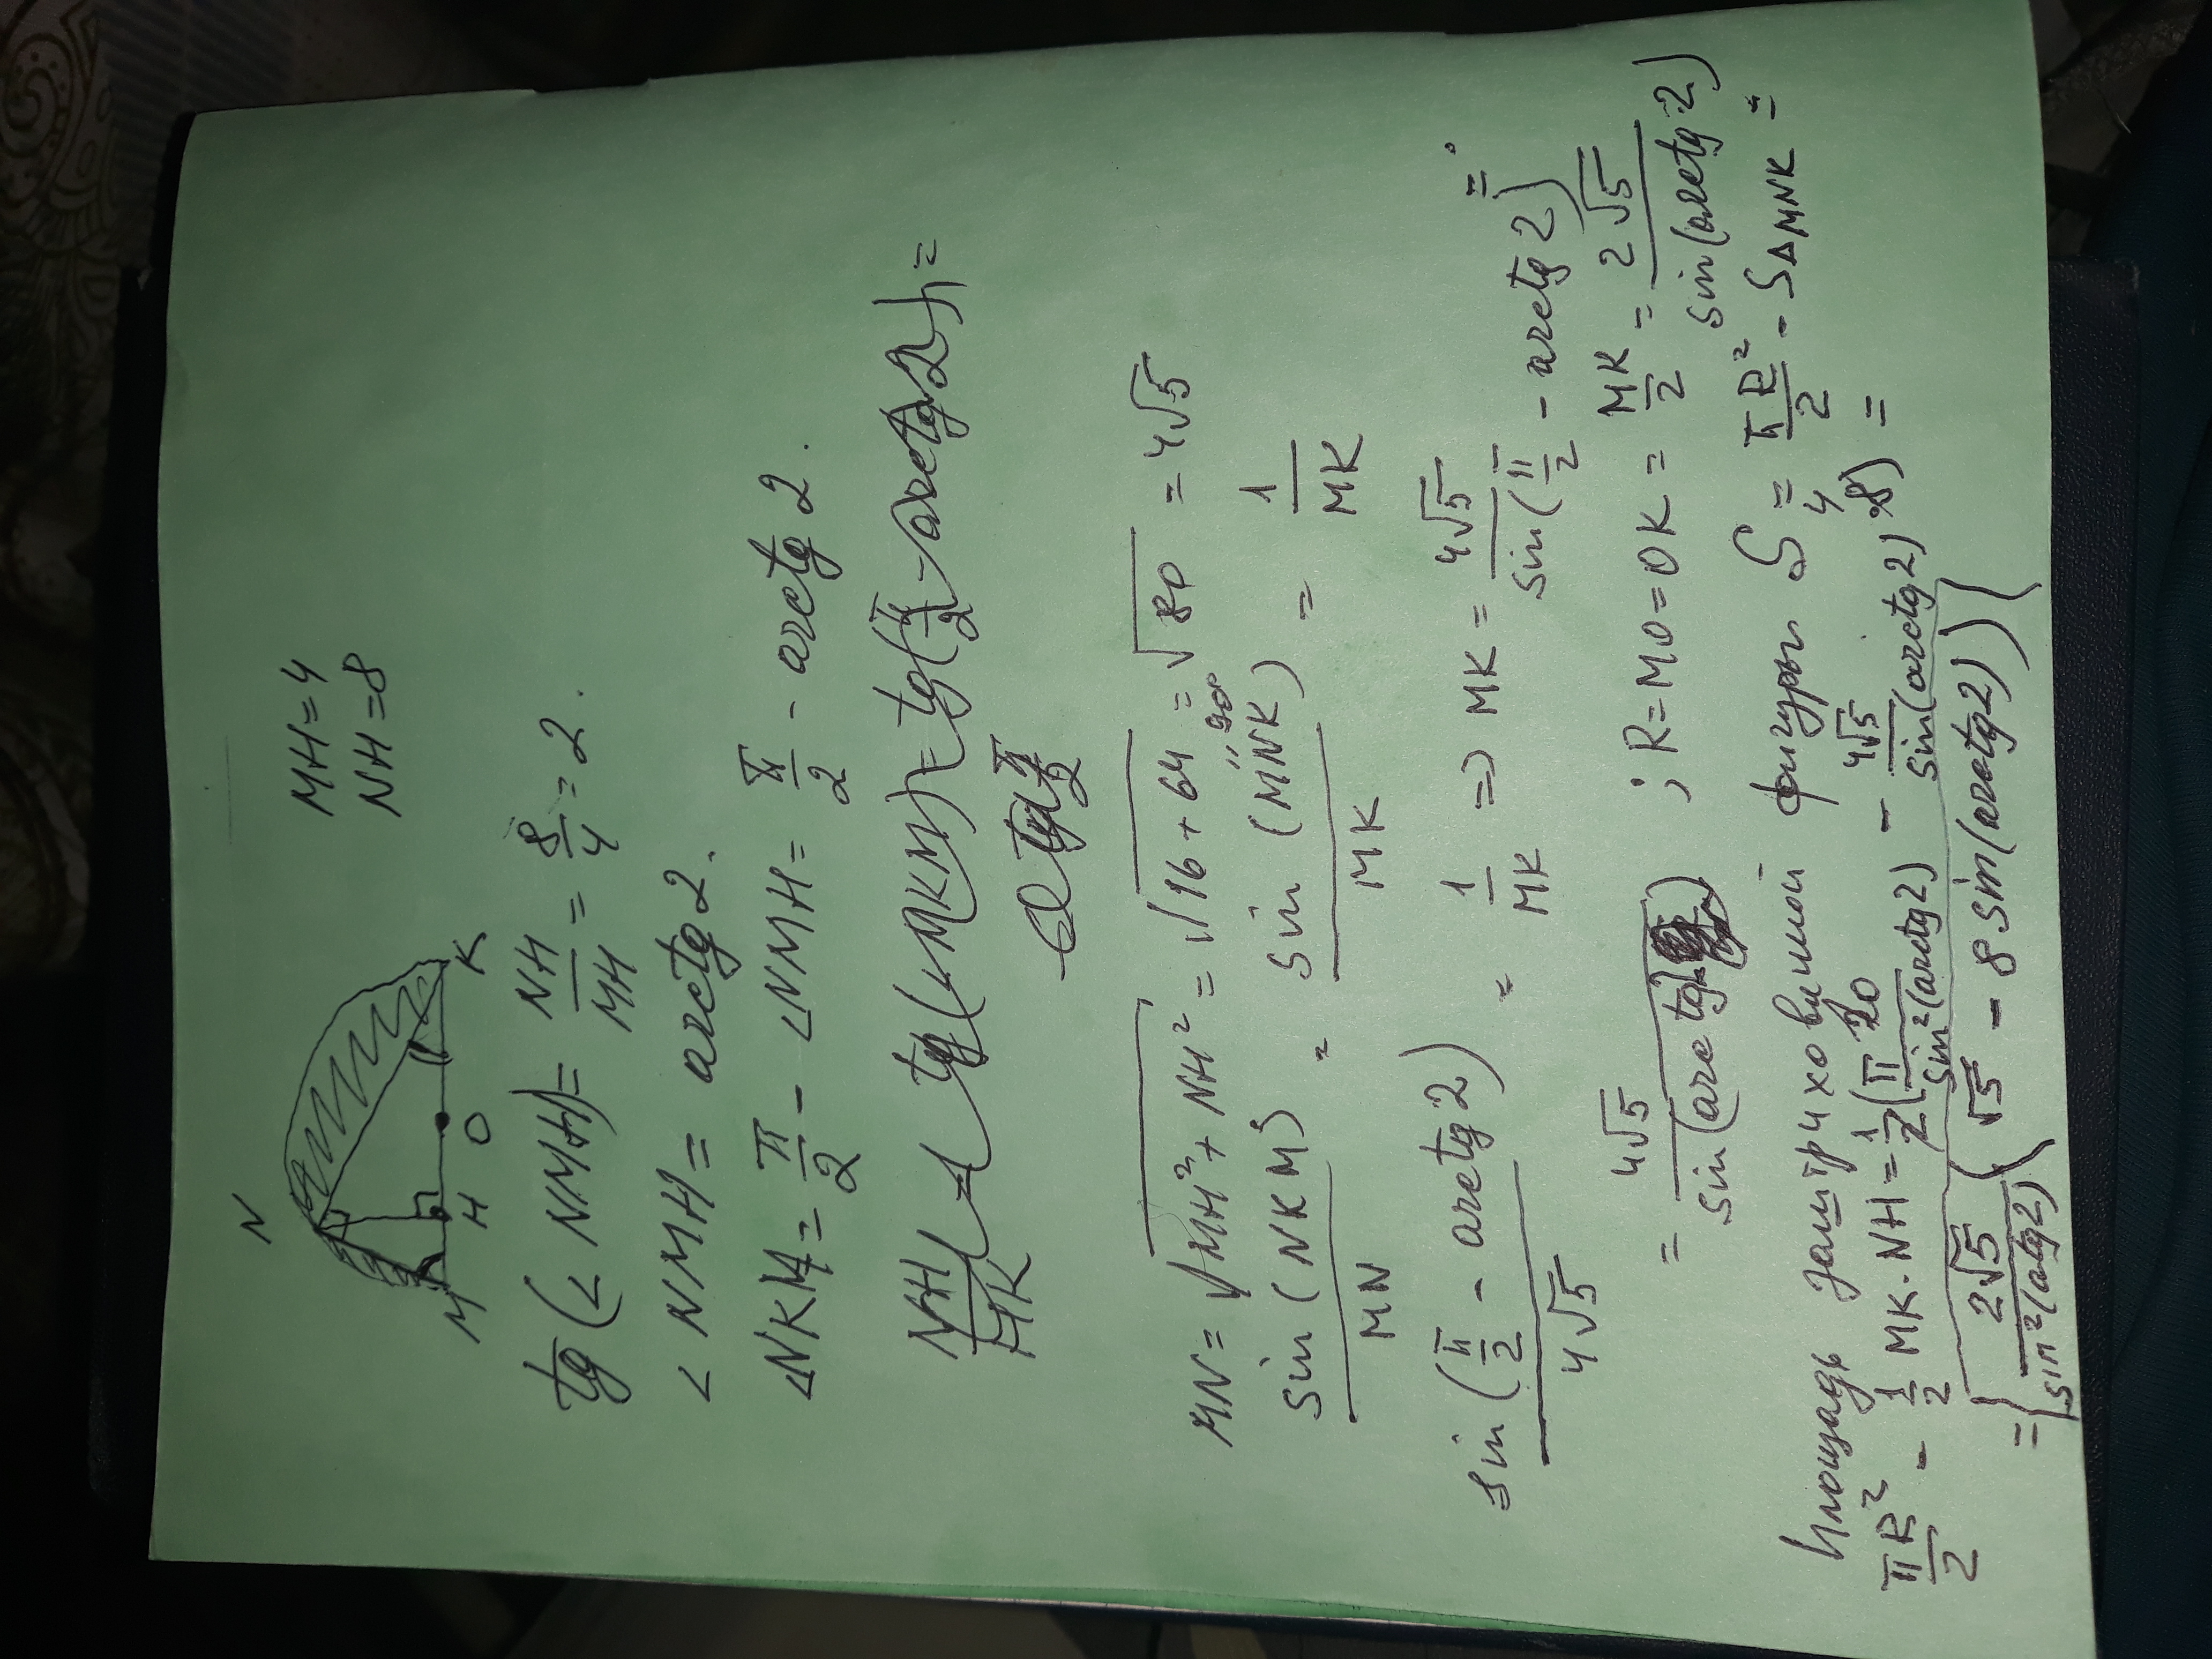 MH=4
NH=8
N
M
H
O
K
tg(∠NMH)= NH/MH = 8/4 = 2.
∠NMH = arctg 2.
∠NKM = π/2 - ∠NMH = π/2 - arctg 2.
NH/HK
MN = √(MH²+NH²) = √(16+64) = √80 = 4√5
sin(NKM)/MN = sin(MNK)/MK = 1/MK
90°
sin(π/2 - arctg 2)/4√5 = 1/MK => MK = 4√5/sin(π/2 - arctg 2) =
= 4√5/sin(arctg 2) ; R=MO=OK = MK/2 = 2√5/sin(arctg 2)
Площадь заштриховимой фигуры S = πR²/2 - S△MNK =
πR²/2 - 1/2 MK·NH = 1/2(π 20/sin²(arctg 2) - 4√5/sin(arctg 2)·8) =
= 2√5/sin²(arctg 2) (√5 - 8 sin(arctg 2))